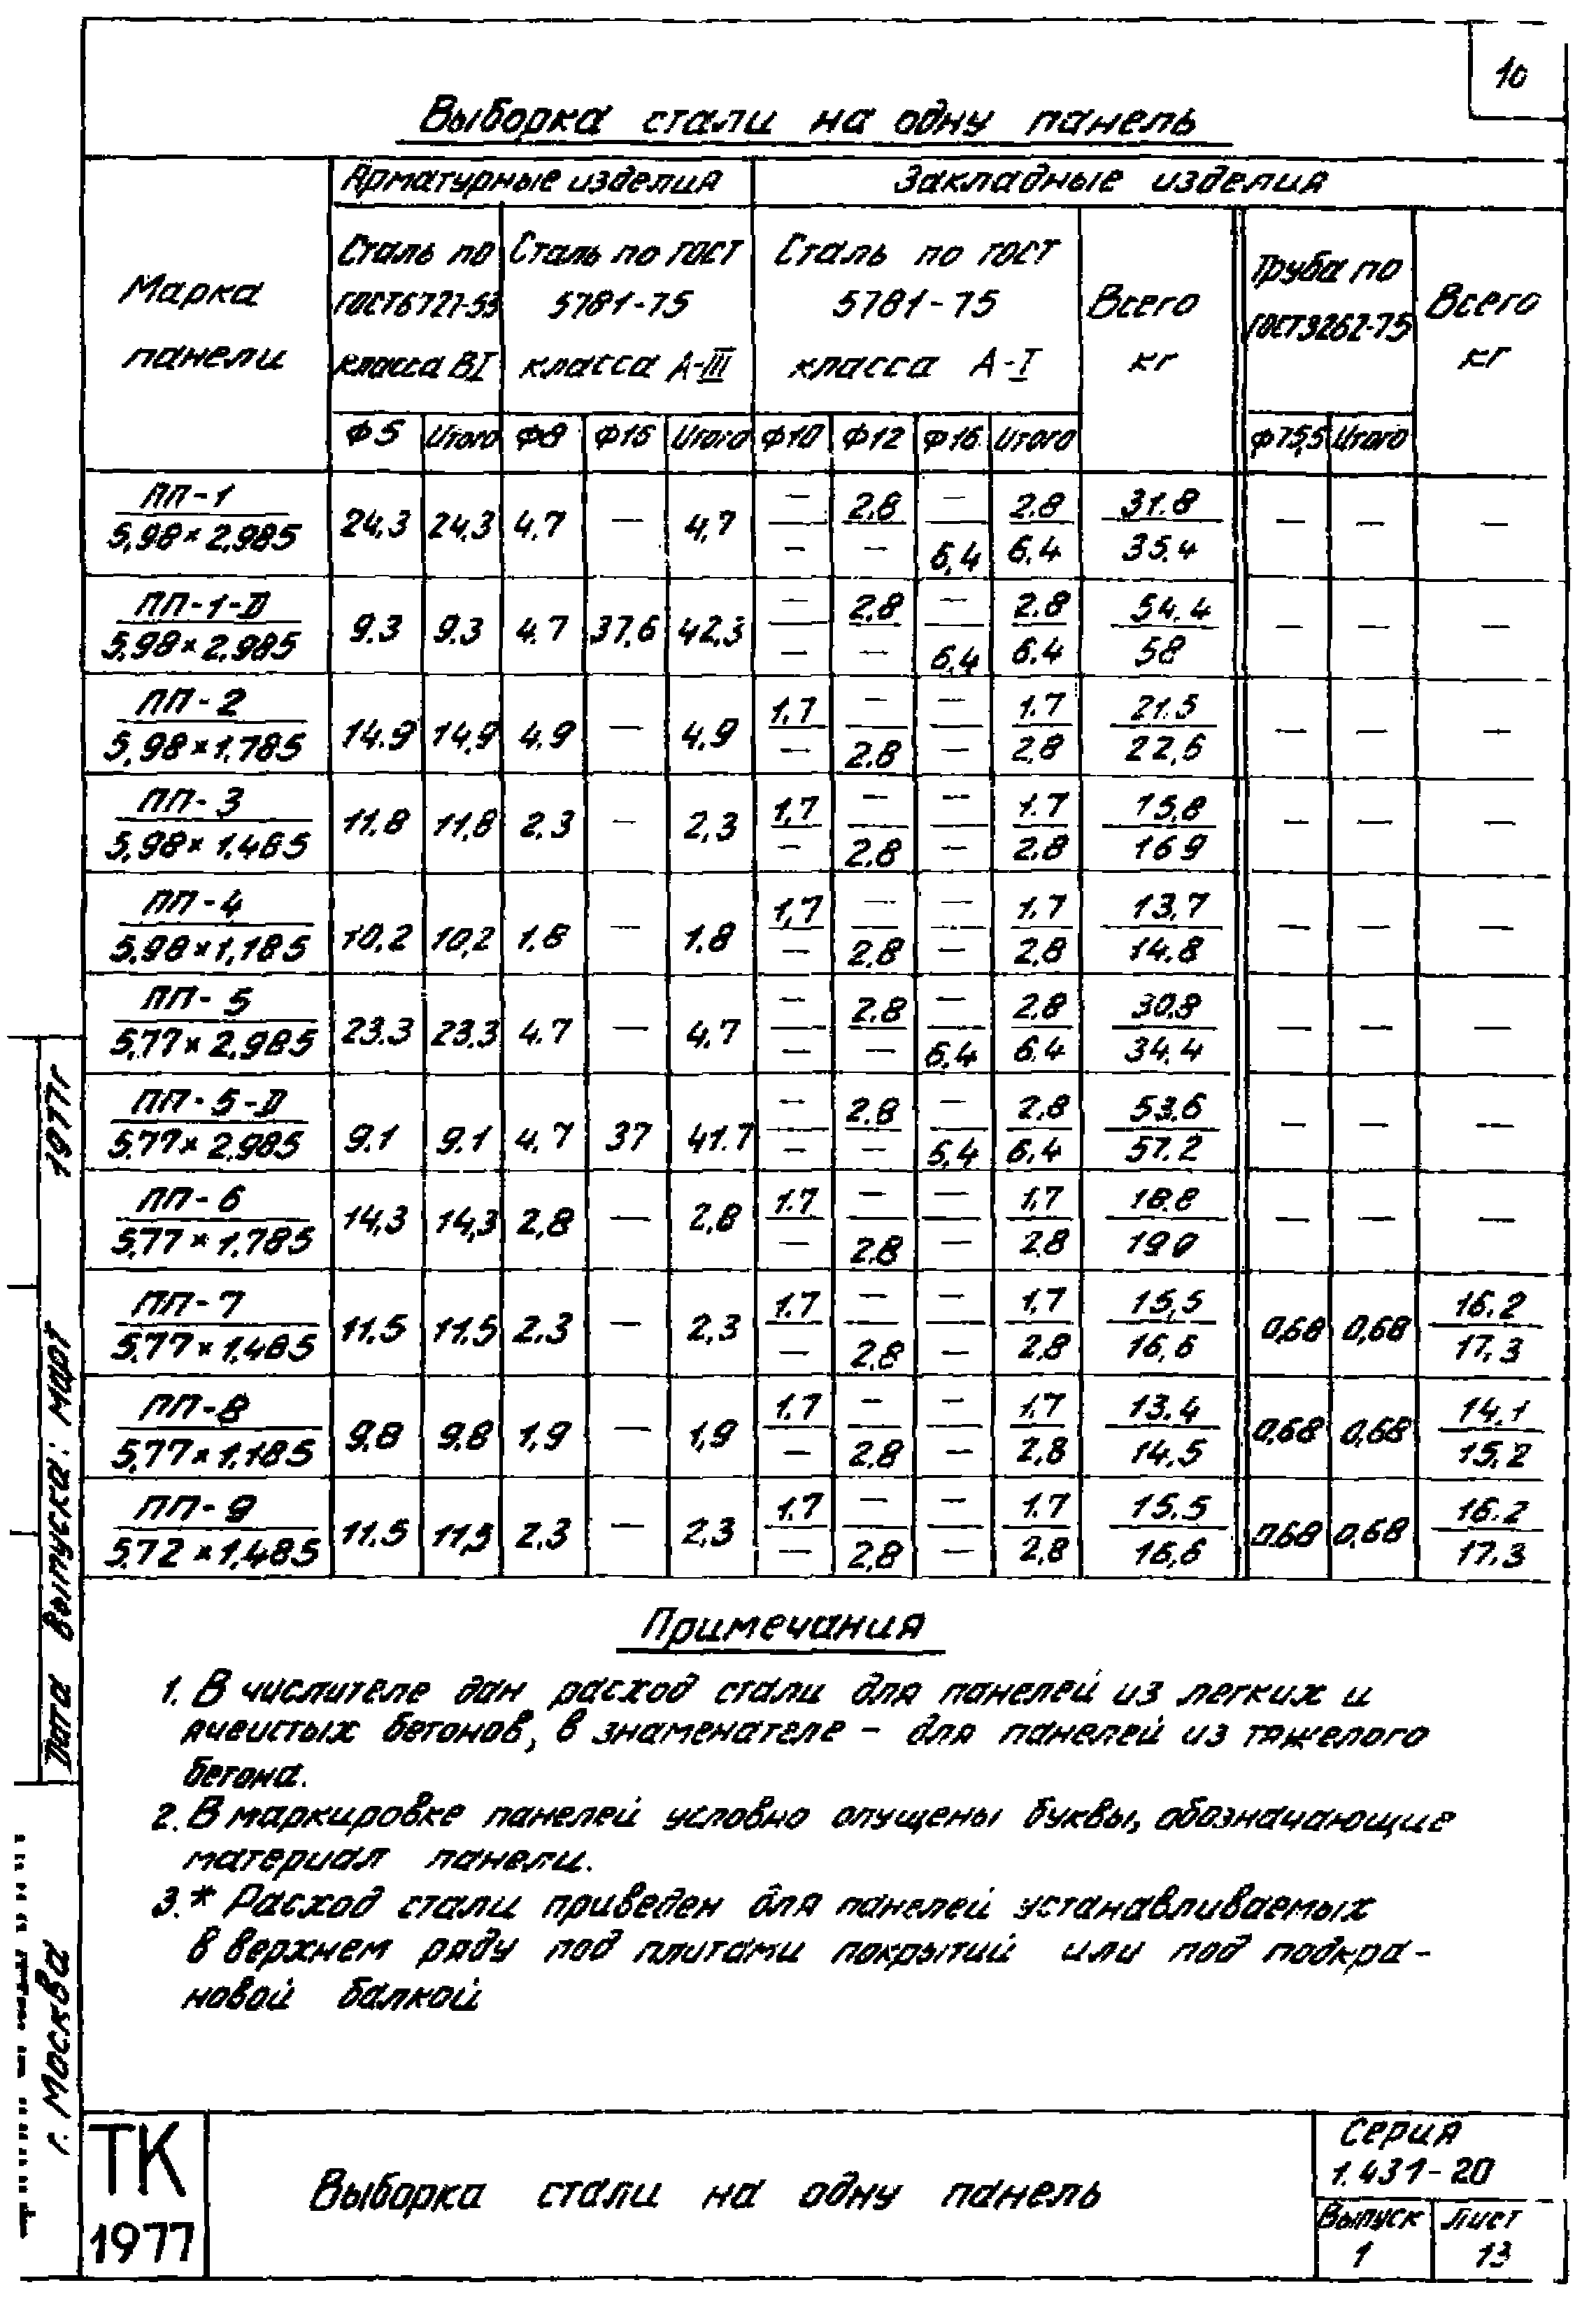 10
Выборка стали на одну панель
Марка панели
Арматурные изделия
Закладные изделия
Сталь по ГОСТ 6727-53 класса ВI
Сталь по ГОСТ 5781-75 класса А-III
Сталь по ГОСТ 5781-75 класса А-I
Всего кг
Труба по ГОСТ 3262-75
Всего кг
Ф5 Итого Ф8 Ф16 Итого Ф10 Ф12 Ф16 Итого Ф75,5 Итого
ПП-1 — 2.8 — 2.8 31.8
24,3 24,3 4.7 — 4,7 — — —
5,98×2,985 — — 6,4 6.4 35.4
ПП-1-D — 2,8 — 2.8 54.4
9.3 9.3 4.7 37,6 42,3 — — —
5.98×2.985 — — 6,4 6.4 58
ПП-2 1.7 — — 1.7 21.5
14.9 14,9 4.9 — 4,9 — — —
5,98×1,785 — 2.8 — 2,8 22,6
ПП-3 1,7 — — 1.7 15,8
11.8 11,8 2.3 — 2,3 — — —
5,98×1,485 — 2.8 — 2.8 16 9
ПП-4 1,7 — — 1.7 13,7
10,2 10,2 1.8 — 1.8 — — —
5,98×1,185 — 2.8 — 2,8 14.8
ПП-5 — 2.8 — 2,8 30.8
23.3 23.3 4.7 — 4,7 — — —
5,77×2,985 — — 6,4 6.4 34.4
ПП-5-D — 2.8 — 2.8 53.6
9.1 9.1 4.7 37 41.7 — — —
5.77×2.985 — — 6.4 6.4 57.2
ПП-6 1.7 — — 1,7 18.8
14,3 14,3 2,8 — 2,8 — — —
5,77×1.785 — 2.8 — 2.8
ПП-7 1.7 — — 1,7 15,5 16.2
11.5 11.5 2.3 — 2,3 0,68 0,68
5,77×1,485 — 2.8 — 2,8 16,6 17,3
ПП-8 1.7 — — 1.7 13.4 14,1
9.8 9.8 1,9 — 1,9 0,68 0,68
5,77×1.185 — 2.8 — 2,8 14,5 15,2
ПП-9 1.7 — — 1.7 15.5 16.2
11.5 11,5 2.3 — 2,3 0,68 0,68
5,72×1,485 — 2,8 — 2,8 16,6 17.3
Примечания
1. В числителе дан расход стали для панелей из легких и
ячеистых бетонов, в знаменателе – для панелей из тяжелого
бетона.
2. В маркировке панелей условно опущены буквы, обозначающие
материал панели.
3.* Расход стали приведен для панелей устанавливаемых
в верхнем ряду под плитами покрытий или под подкра-
новой балкой
Дата выпуска: март 1977г
г. Москва
ТК
1977
Выборка стали на одну панель
Серия
1.431-20
Выпуск Лист
1 13